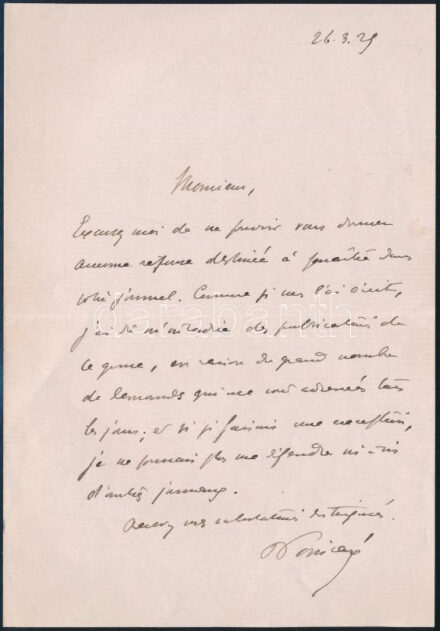 26.3.25
Monsieur,
Excusez moi de ne pouvoir vous donner
aucune réponse destinée à paraître dans
votre journal. Comme je vous l'ai écrit,
j'ai dû m'interdire des publications de
ce genre, en raison du grand nombre
de demandes qui me sont adressées tous
les jours, et si je faisais une exception,
je ne pourrais plus me défendre vis à vis
d'autres journaux.
Recevez mes salutations distinguées.
Poincaré
darabanth